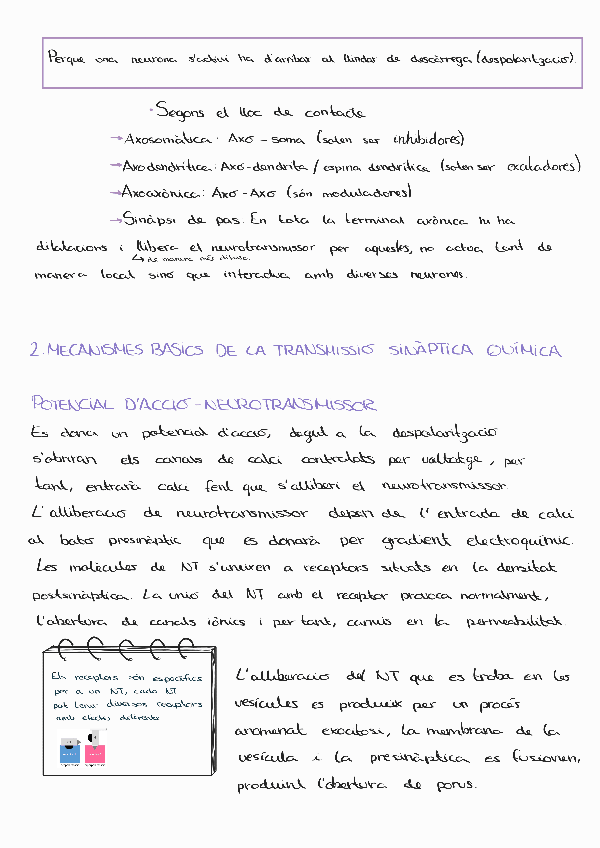 Perque una neurona s'activi ha d'arribar al llindar de descàrrega (despolarització).
· Segons el lloc de contacte
→ Axosomàtica: Axó - soma (solen ser inhibidores)
→ Axodendrítica: Axó-dendrita / espina dendrítica (solen ser excitadores)
→ Axoaxònica: Axó - Axó (són moduladores)
→ Sinàpsi de pas. En tota la terminal axònica hi ha
dilatacions i llibera el neurotransmissor per aquestes, no actua tant de
↳ de manera més difusa.
manera local sinó que interactua amb diverses neurones.
2. MECANISMES BASICS DE LA TRANSMISSIÓ SINÀPTICA QUÍMICA
POTENCIAL D'ACCIÓ - NEUROTRANSMISSOR
Es dona un potencial d'acció, degut a la despolarització
s'obriran els canals de calci controlats per voltatge, per
tant, entrarà calci fent que s'alliberi el neurotransmissor.
L'alliberació de neurotransmissor depèn de l'entrada de calci
al botó presinàptic que es donarà per gradient electroquímic.
Les molècules de NT s'uneixen a receptors situats en la densitat
postsinàptica. La unió del NT amb el receptor provoca normalment,
l'obertura de canals iònics i per tant, canvis en la permeabilitat
Els receptors són específics
per a un NT, cada NT
pot tenir diversos receptors
amb efectes diferents
L'alliberació del NT que es troba en les
vesícules es produeix per un procés
anomenat exocitosi, la membrana de la
vesícula i la presinàptica es fusionen,
produint l'obertura de porus.